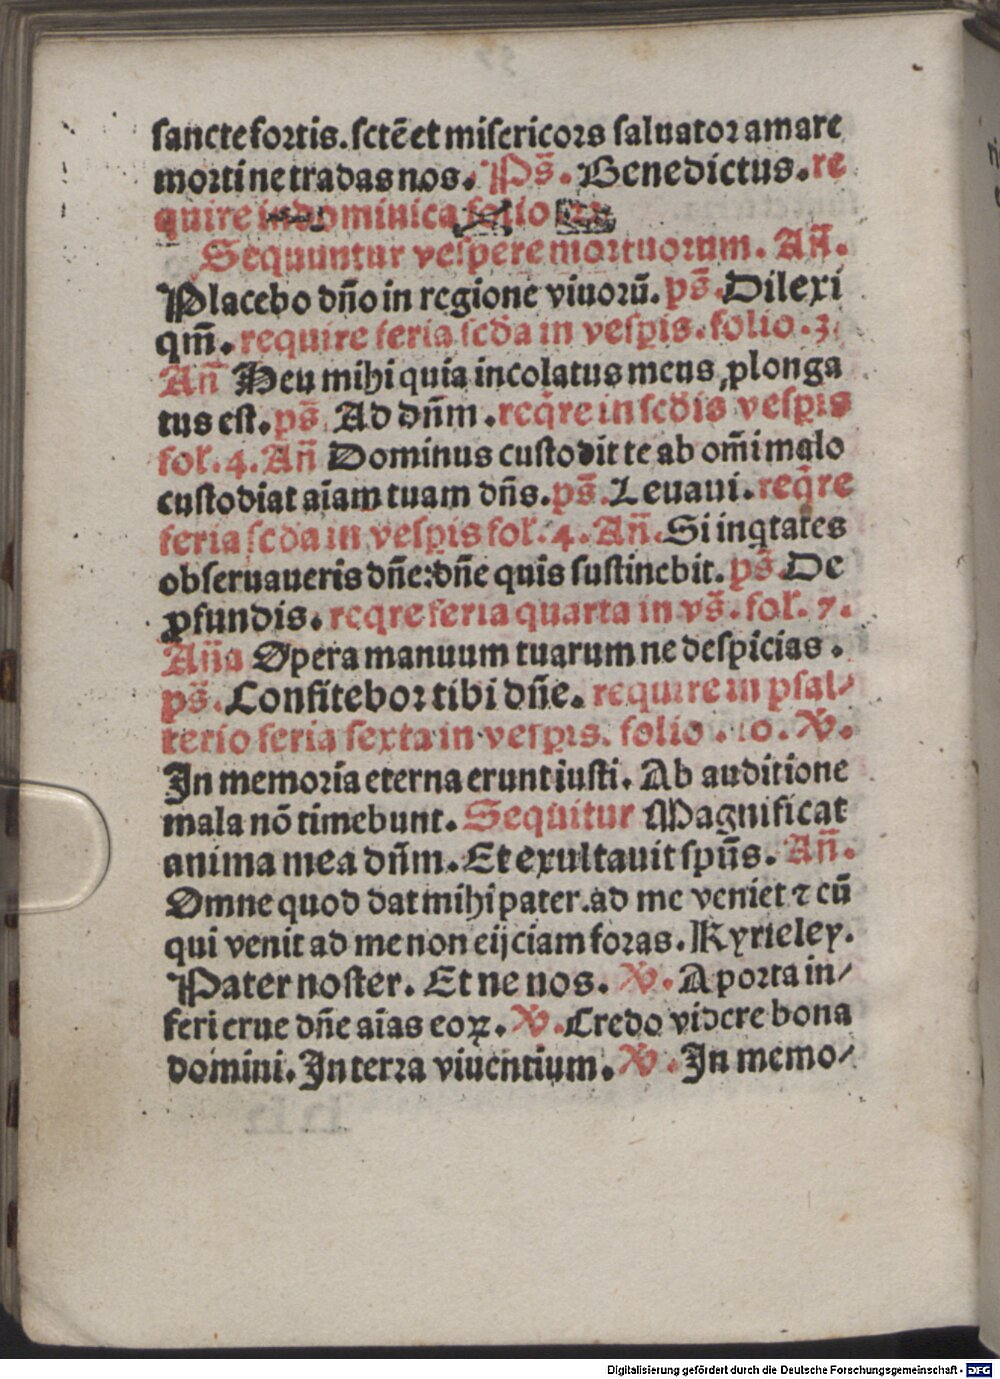 sancte fortis. sctē et misericors saluator amare
morti ne tradas nos. Ps̄. Benedictus. re
quire in dominica folio
Sequuntur vespere mortuorum. Añ.
Placebo dño in regione viuorū. ps̄. Dilexi
qm̄. require feria scđa in vesp̱is. folio. 3.
Añ Heu mihi quia incolatus meus ꝓlonga
tus est. ps̄. Ad dñm. reqͥre in scđis vesp̱is
fol. 4. Añ Dominus custodit te ab om̄i malo
custodiat aīam tuam dñs. ps̄. Leuaui. reqͥre
feria scđa in vesp̱is fol. 4. Añ. Si iniqͥtates
obseruaueris dñe: dñe quis sustinebit. ps̄. De
ꝓfundis. reqͥre feria quarta in vs̄. fol. 7.
Aña Opera manuum tuarum ne despicias.
ps̄. Confitebor tibi dñe. require in psal⸗
terio feria sexta in vesp̱is. folio. 10. ℣.
In memoria eterna erunt iusti. Ab auditione
mala nō timebunt. Sequitur Magnificat
anima mea dñm. Et exultauit spūs. Añ.
Omne quod dat mihi pater. ad me veniet ⁊ cū
qui venit ad me non eijciam foras. Kyrieley.
Pater noster. Et ne nos. ℣. A porta in⸗
feri erue dñe aīas eoꝝ. ℣. Credo videre bona
domini. In terra viuentium. ℣. In memo⸗
Digitalisierung gefördert durch die Deutsche Forschungsgemeinschaft - DFG